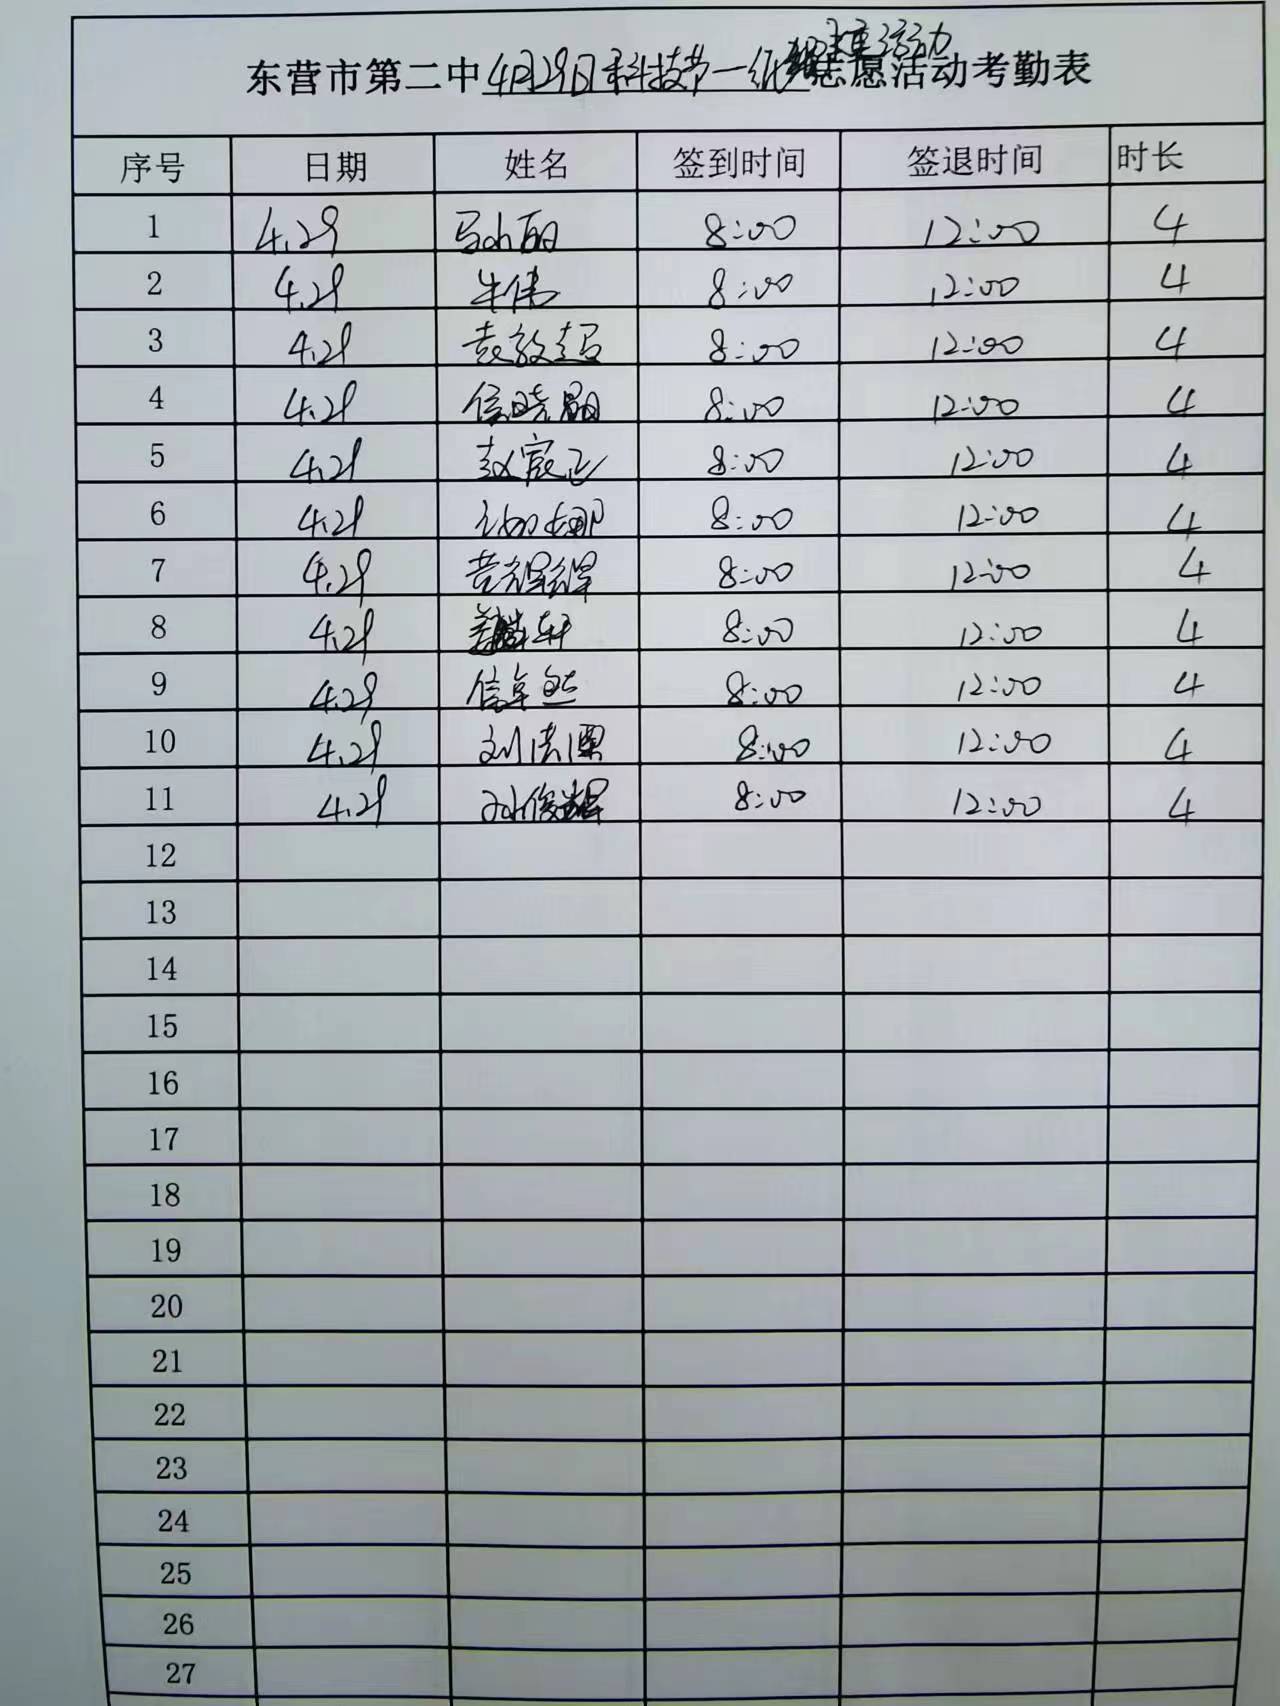 东营市第二中4月29日科技节一纸志愿活动考勤表
序号 日期 姓名 签到时间 签退时间 时长
1 4.29 马小丽 8:00 12:00 4
2 4.29 牛伟 8:00 12:00 4
3 4.29 袁敬超 8:00 12:00 4
4 4.29 信晓 8:00 12:00 4
5 4.29 赵宸飞 8:00 12:00 4
6 4.29 娜 8:00 12:00 4
7 4.29 8:00 12:00 4
8 4.29 轩 8:00 12:00 4
9 4.29 信卓然 8:00 12:00 4
10 4.29 刘洪溟 8:00 12:00 4
11 4.29 孙俊辉 8:00 12:00 4
12
13
14
15
16
17
18
19
20
21
22
23
24
25
26
27